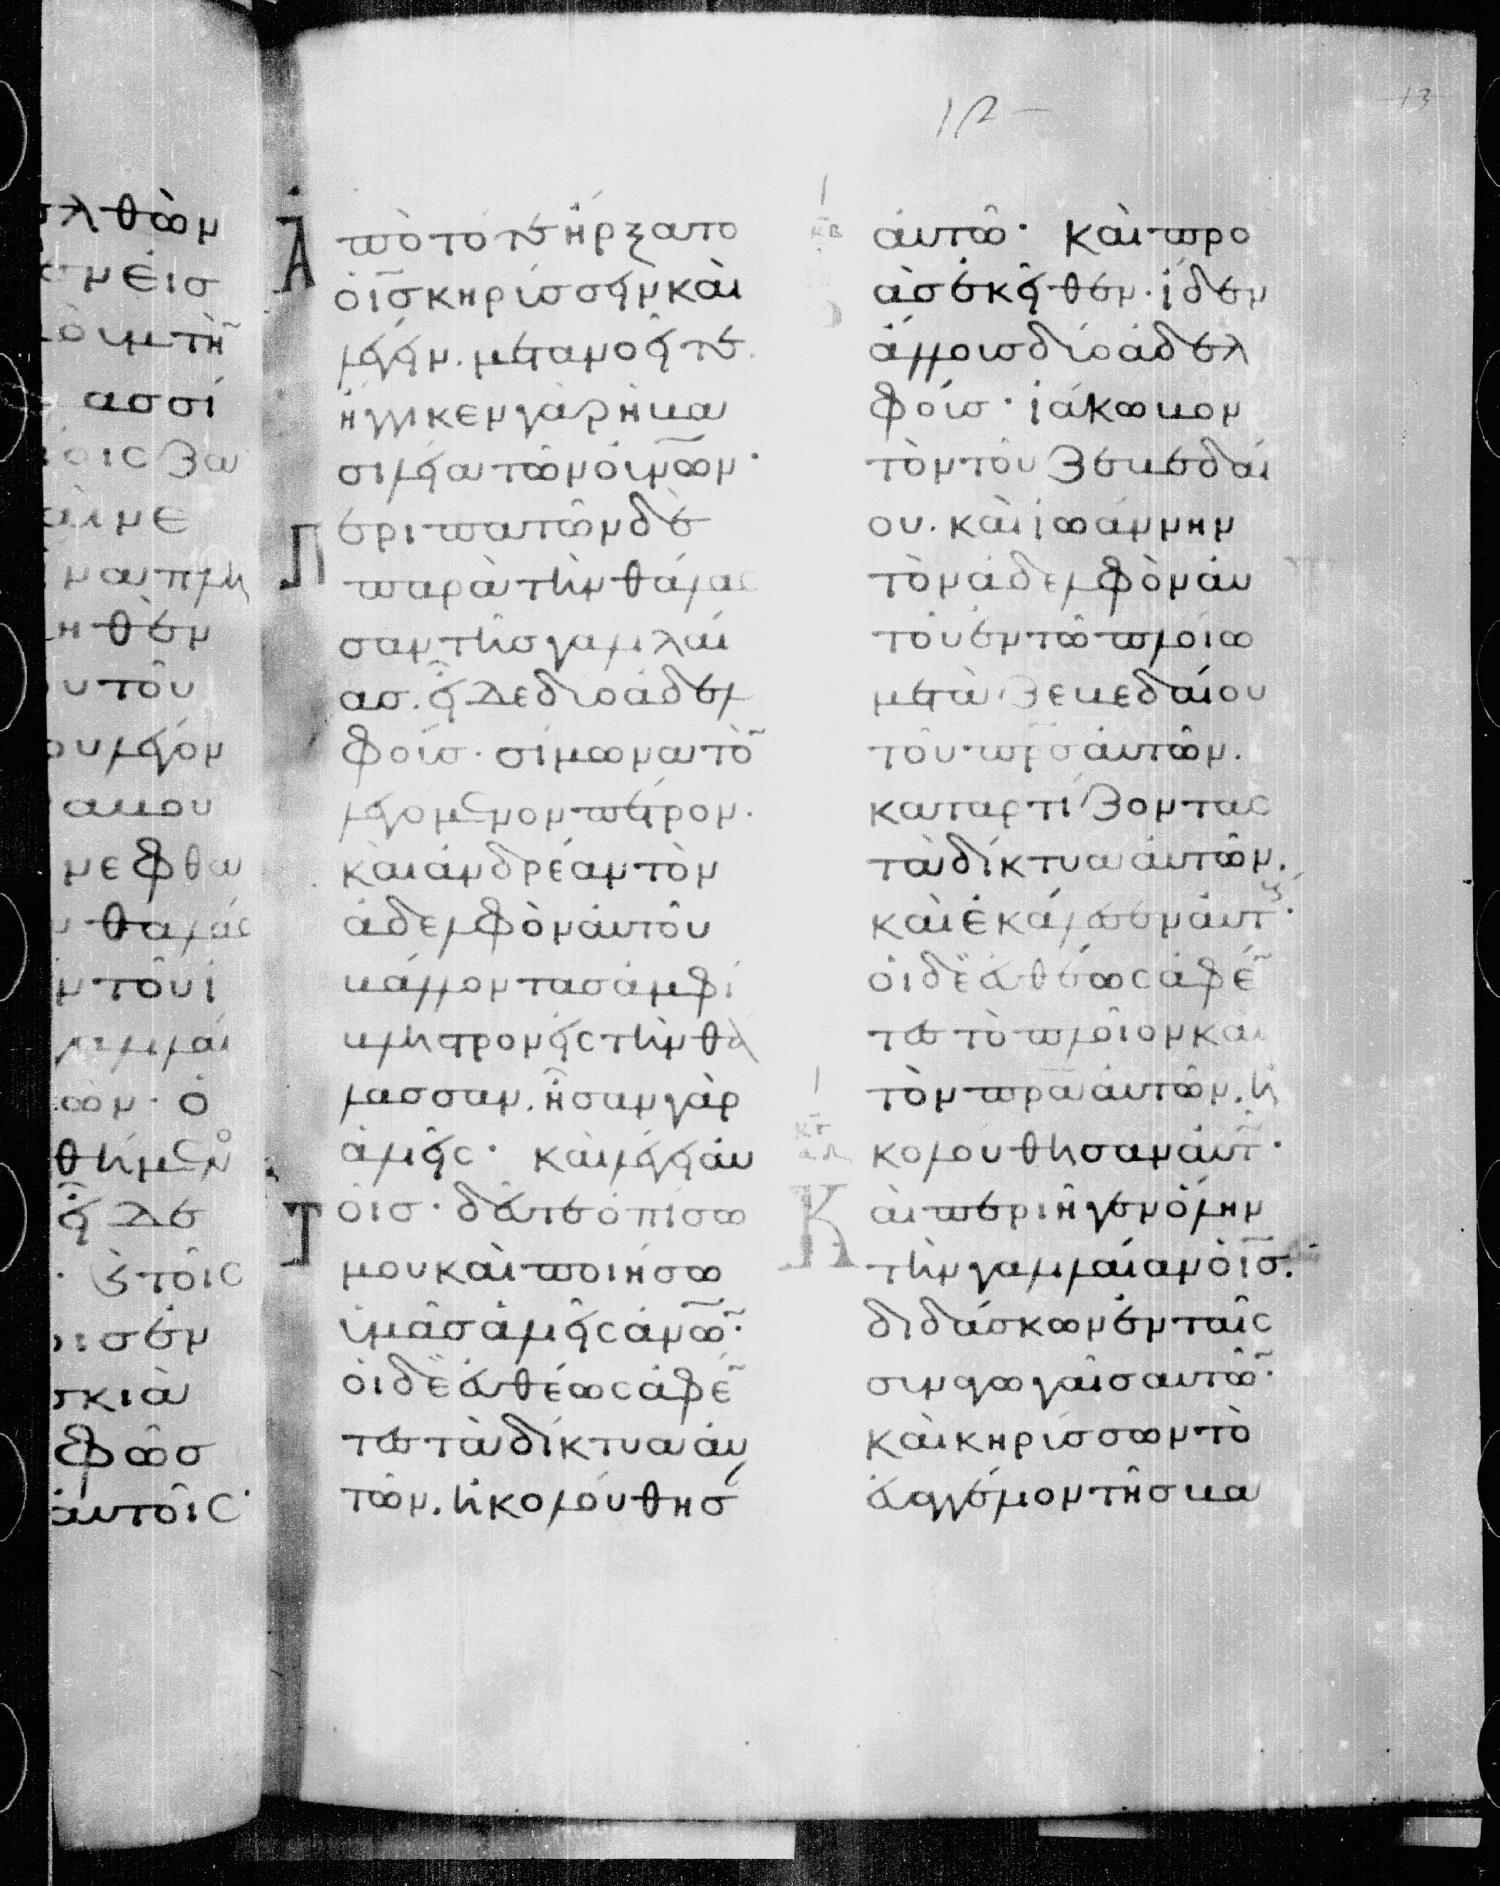 12 13
λθὼν
μεὶσ
ὸν τῆ
ασσί
οισ ζα
ὰι νε
ναπλη
ηθὲν
υτοῦ
ουλεγόν
αβου
νεφθα
θαλάς
ν τοῦ ἰ
λιλαί
ῶν· ὁ
θήμεν
εἶδε
· κ τοῖς
ισὲν
σκιὰ
φῶσ
ἀυτοῖς·
Ἀπὸ τότε ἤρξατο
ὁ ισ κηρύσσειν καὶ
λέγειν. μετανοεῖτε.
ἤγγικεν γὰρ ἡ βα
σιλεία τῶν ουνων·
Περιπατῶν δὲ
παρὰ τὴν θάλας
σαν τῆσ γαλιλαί
ασ. εἶδε δύο ἀδελ
φούσ· σίμωνα τὸ
λεγόμενον πέτρον.
καὶ ἀνδρέαν τὸν
ἀδελφὸν ἀυτοῦ
βάλλοντασ ἀμφί
βληστρον εἰς τὴν θά
λασσαν. ἦσαν γὰρ
ἁλιεῖς· καὶ λέγει ἀυ
τοῖσ· δεῦτε ὀπίσω
μου καὶ ποιήσω
ὑμᾶσ ἁλιεῖς ἀνων·
ὁι δὲ ἐυθέως ἀφέ
τεσ τὰ δίκτυα ἀυ
τῶν. ἠκολούθησ
ἀυτῶ· Καὶ προ
βὰσ ἐκεῖθεν. ἴδεν
ἄλλουσ δύο ἀδελ
φούσ· ἰάκωβον
τὸν τοῦ ζεβεδαί
ου. καὶ ἰωάννην
τὸν ἀδελφὸν ἀυ
τοῦ ἐν τῶ πλοίω
μετὰ ζεβεδαίου
τοῦ πρσ ἀυτῶν.
καταρτίζοντας
τὰ δίκτυα ἀυτῶν.
καὶ ἐκάλεσεν ἀυτ·
ὁι δὲ ἐυθέως ἀφέ
τεσ τὸ πλοῖον καὶ
τὸν πρα ἀυτῶν. ἠ
κολούθησαν ἀυτ·
Καὶ περιῆγεν ὅλην
τὴν γαλιλαίαν ὁ ισ.
διδάσκων ἐν ταῖς
συναγωγαῖσ αυτῶ·
καὶ κηρύσσων τὸ
ἐυαγγέλιον τῆσ βα